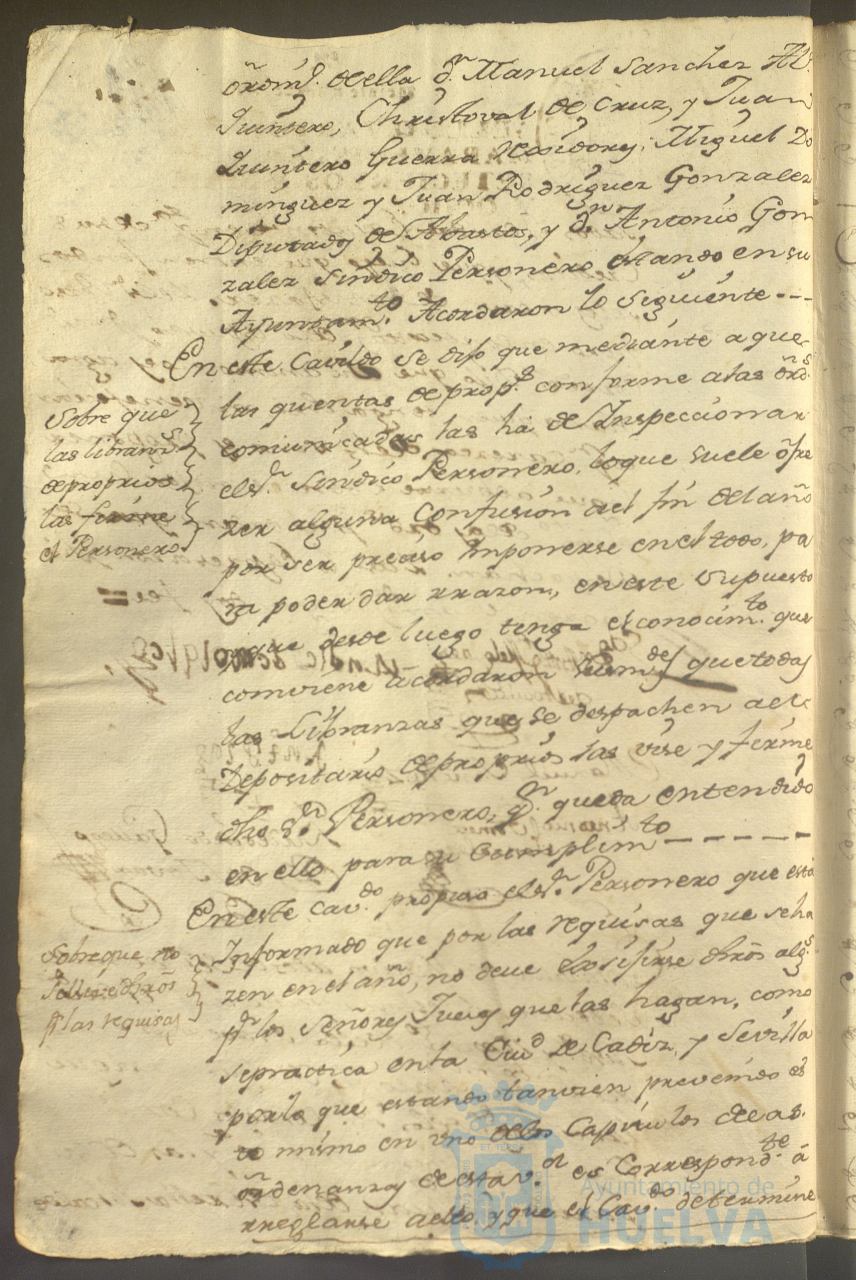 ordin.s de ella d.n Manuel Sanchez Al
Quintero, Christoval de Cruz, y Juan
Quintero Guerra Rexidores; Miguel Do
minguez y Juan Rodriguez Gonzalez
Diputados de Abastos, y d.n Antonio Gon
zalez Sindico Personero estando en su
Ayuntam.to Acordaron lo siguiente ---
En este Cavildo se dijo que mediante a que
las quentas de prop.s conforme a las ord.s
comunicadas las ha de Inspeccionar
el s.r Sindico Personero, lo que suele ofre
zer alguna confusion al fin del año
por ser preciso Imponerse en el todo, pa
ra poder dar rrazon, en este supuesto
y que desde luego tenga el conocim.to que
comviene acordaron que todas
las Libranzas que se despachen al
Depositario de proprios las vise y firme
dho S.r Personero, q.n queda entendido
en ello para su Cumplim.to -----
Sobre que
las libran.s
de proprios
las firme
el Personero
En este Cav.do propuso el s.r Personero que está
Informado que por las requisas que se ha
zen en el año, no deve dros alg.s
p.r los Señores Juezes que las hagan, como
se practica en la Ciud de Cadiz, y Sevilla
por lo que estando tanvien prevenido es
to mismo en uno de los Capitulos de as
ordenanzas de esta v.a es Correspond.te á
rreglarse a ello, y que el Cav.do determine
Sobre que no
se lleve dros
p.r las requisas
Ayuntamiento de
HUELVA